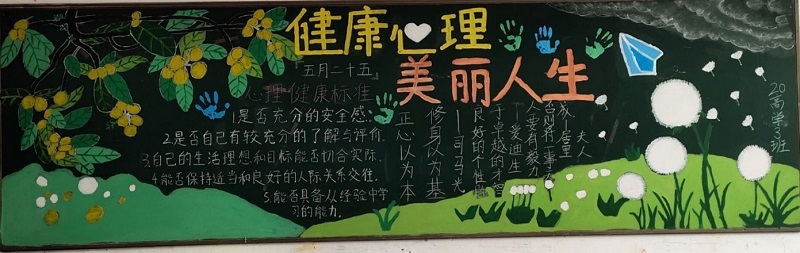 健康心理
美丽人生
『五月二十五』
心理健康标准
1是否充分的安全感:
2.是否自己有较充分的了解与评价.
3.自己的生活理想和目标能否切合实际.
4.能否保持适当和良好的人际关系交往.
5.能否具备从经验中学
习的能力.
正心以为本
修身以为基
——司马光
良好的个性胜
于卓越的才智
——爱迪生
人要有毅力
否则将一事无
成——居里夫人
20高学3班